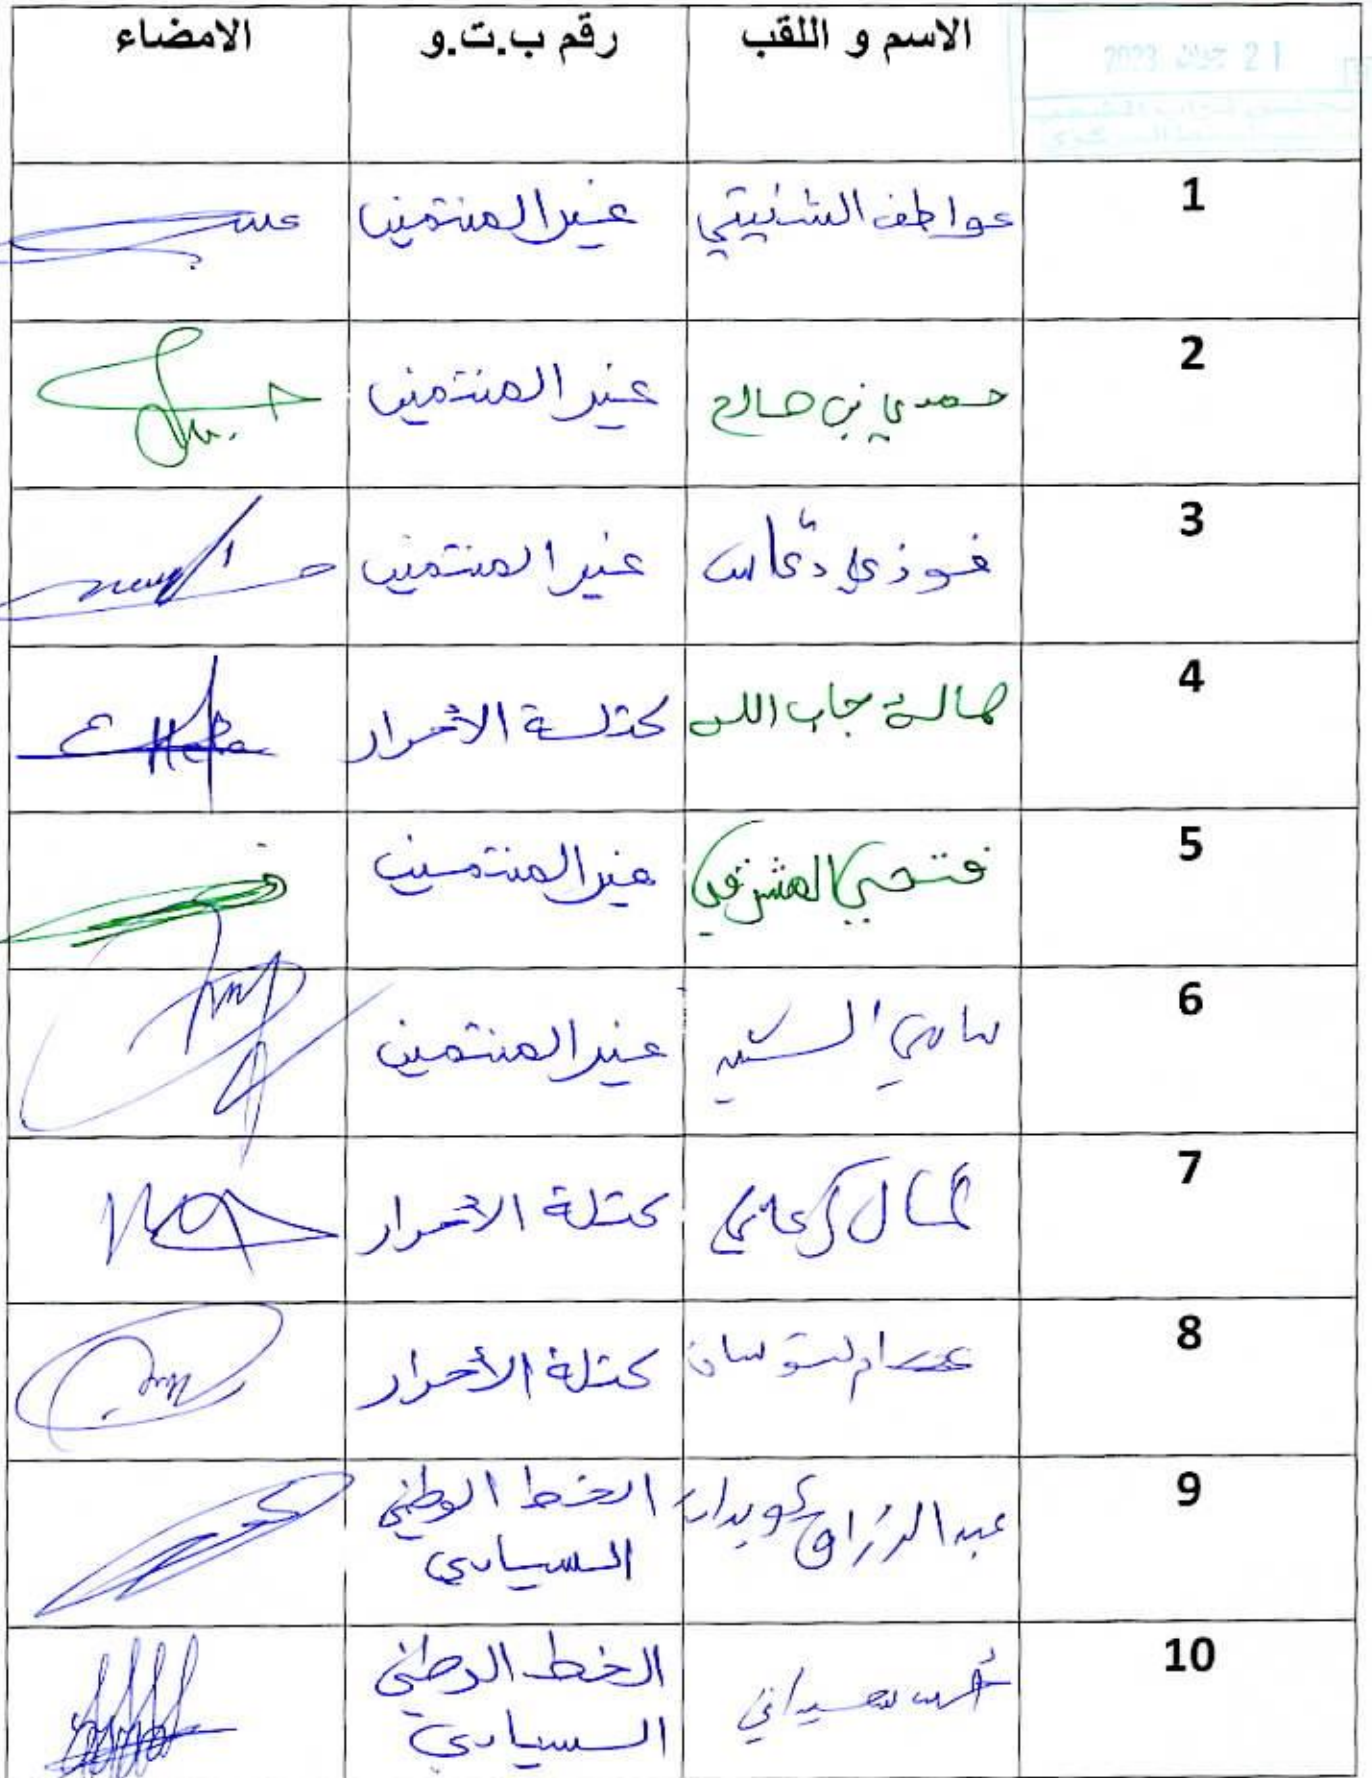 21 جوان 2023
الاسم و اللقب رقم ب.ت.و الامضاء
1 عواطف الشنيتي غير المنتمين
2 حمدي بن صالح غير المنتمين
3 فوزي دعاس غير المنتمين
4 هالة جاب الله كتلة الأحرار
5 فتحي المشرقي غير المنتمين
6 سامي السيد غير المنتمين
7 كتلة الأحرار
8 عصام كتلة الأحرار
9 عبد الرزاق عويدات الخط الوطني
السيادي
10 سعيداني الخط الوطني
السيادي